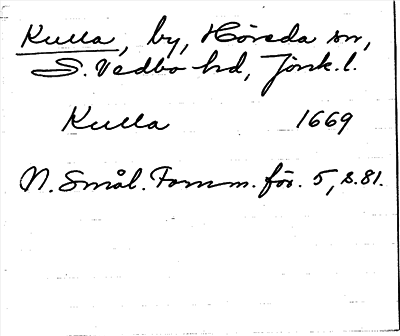 Kulla, by, Hörsda sn,
S. Vedbo hd, Jönk. l.
Kulla 1669
N. Smål. Fornm. för. 5, s. 81.